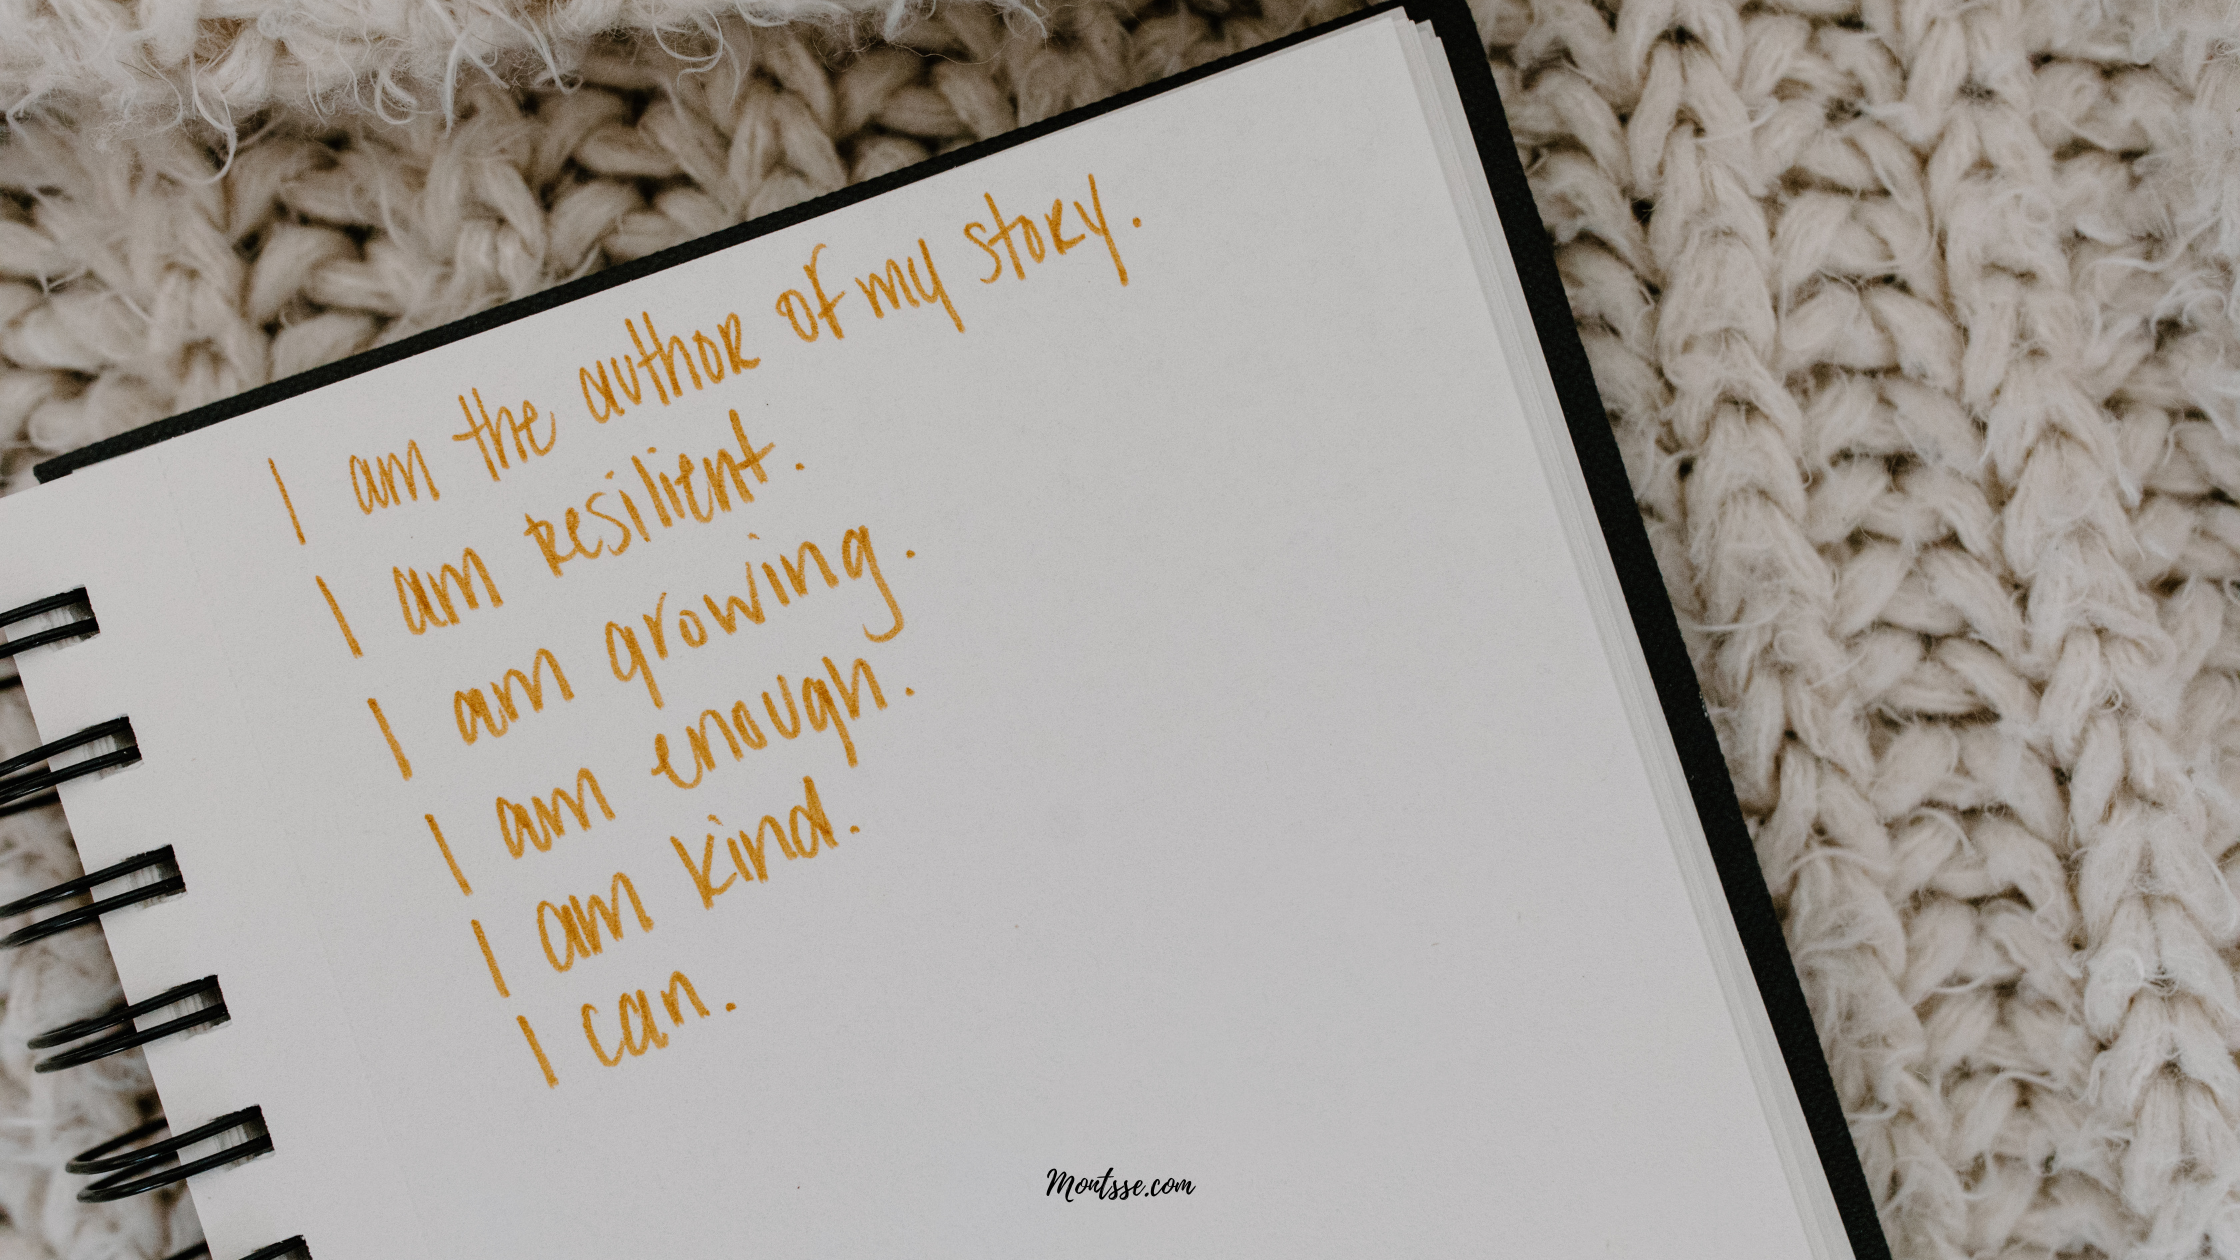 I am the author of my story.
I am resilient.
I am growing.
I am enough.
I am kind.
I can.
Montsse.com